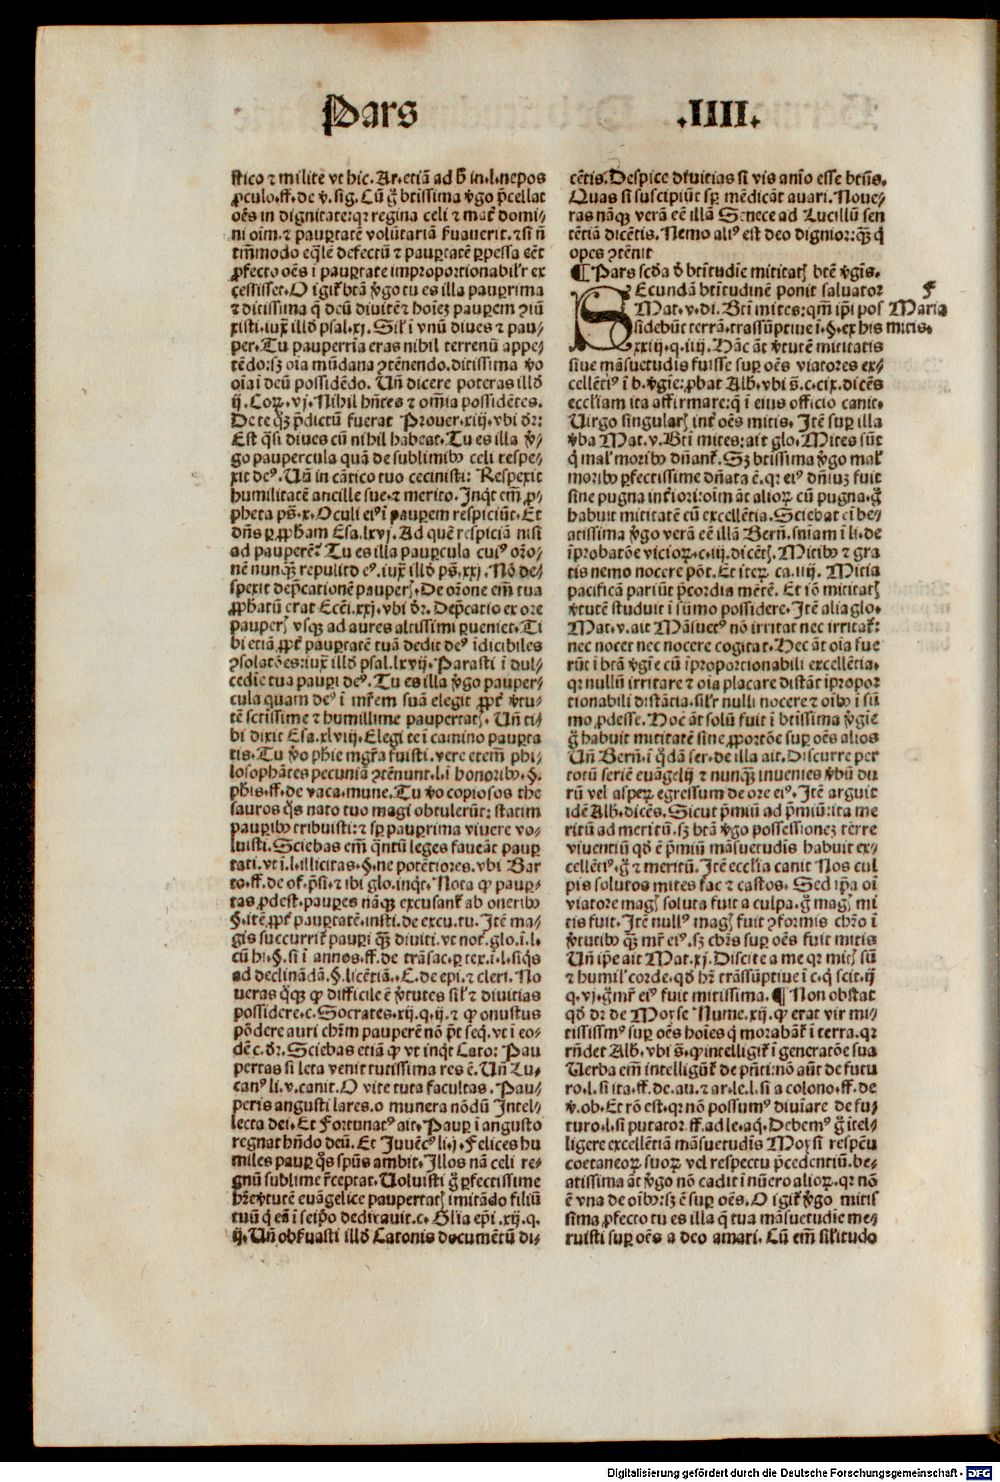 Pars .IIII.
stico ⁊ milite vt hic. Ar. etiā ad h̄ in. l. nepos
ꝓculo. ff. de v̓. sig. Cū g̊ btīssima v̓go p̄cellat
oēs in dignitate: qr regina celi ⁊ mat̓ domi⸗
ni oīm. ⁊ paup̱tatē volūtariā ẜuauerit. ⁊ si n̄
tm̄modo eq̄lē defectū ⁊ paup̱tatē p̱pessa eēt
ꝓfecto oēs ī paup̱tate improportionabilr̓ ex
cessisset. O igit̓ btā v̓go tu es illa paup̱rima
⁊ ditissima q̄ deū diuitē ⁊ hoīez paup̱em ꝯiū
xisti. iux̄ illḋ psal. xj. Sil̓ ī vnū diues ⁊ pau⸗
per. Tu pauperrīa eras nihil terrenū appe⸗
tēdo: sꝫ oīa mūdana ꝯtēnendo. ditissima v̓o
oīa ī deū possidēdo. Un̄ dicere poteras illḋ
ij. Coꝝ. vj. Nihil hn̄tes ⁊ om̄ia possidētes.
De te qꝫ p̄dictū fuerat Prouer. xiij. vbi dr̄:
Est q̄si diues cū nihil habeat. Tu es illa v̓⸗
go paupercula quā de sublimibꝰ celi respe⸗
xit deꝰ. Un̄ in cātico tuo cecinisti: Respexit
humilitatē ancille sue. ⁊ merito. Inq̄t em̄ ꝓ⸗
pheta ps̄. x. Oculi eiꝰ ī paup̱em respiciūt. Et
dn̄s p̱ ꝓpham Esa. lxvj. Ad quē respiciā nisi
ad pauperē? Tu es illa paup̱cula cuiꝰ orō⸗
nē nunqꝫ repulit deꝰ. iux̄ illḋ ps̄. xxj. Nō de⸗
spexit dep̄cationē pauperꝭ. De orōne em̄ tua
ꝓphatū erat Eccī. xxj. vbi dr̄. Dep̄catio ex ore
pauperꝭ vsqꝫ ad aures altissimi p̱ueniet. Ti
bi etiā ꝓpt̓ paup̱tatē tuā dedit deꝰ īdicibiles
ꝯsolatōes: iux̄ illḋ psal. lxvij. Parasti ī dul⸗
cedīe tua paup̱i deꝰ. Tu es illa v̓go pauper⸗
cula quam deꝰ ī mr̄em suā elegit ꝓpt̓ v̓tu⸗
tē sctissime ⁊ humillime paupertatꝭ. Un̄ ti⸗
bi dixit Esa. xlviij. Elegi te ī camino paup̱ta
tis. Tu v̓o phīe mgr̄a fuisti. vere etem̄ phi⸗
losophātes pecuniā ꝯtēnunt. l. i honoribꝰ. §.
phīs. ff. de vaca. mune. Tu v̓o copiosos the
sauros q̊s nato tuo magi obtulerūt: statim
paup̱ibꝰ tribuisti: ⁊ sp̱ paup̱rima viuere vo⸗
luisti. Sciebas em̄ q̄ntū leges faueāt paup̱
tati. vt ī. l. illicitas. §. ne potētiores. vbi Bar
to. ff. de of. p̄si. ⁊ ibi glo. inq̄t. Nota qꝙ paup̱⸗
tas ꝓdest. paup̱es nāqꝫ excusant̓ ab oneribꝰ
§. itē ꝓpt̓ paup̱tatē. insti. de excu. tu. Itē ma⸗
gis succurrit̓ paup̱i qꝫ diuiti. vt not̓. glo. ī. l.
cū hi. §. si ī annos. ff. de trāsac. p̱ tex. ī. l. siq̄s
ad declinādā. §. licētiā. C. de epi. ⁊ cleri. No
ueras q̊qꝫ ꝙ difficile ē v̓tutes sil̓ ⁊ diuitias
possidere. c. Socrates. xij. q. ij. ⁊ ꝙ onustus
pōdere auri chr̄m pauperē nō p̄t seq̄. vt ī eo⸗
dē c. dr̄. Sciebas etiā ꝙ vt inq̄t Cato: Pau
pertas si leta venit tutissima res ē. Un̄ Lu⸗
canꝰ li. v. canit. O vite tuta facultas. Pau⸗
peris angusti lares. o munera nōdū Intel⸗
lecta dei. Et Fortunatꝰ ait. Paup̱ ī angusto
regnat hn̄do deū. Et Juuēcꝰ li. j. Felices hu
miles paup̱ q̊s sp̄us ambit. Illos nā celi re⸗
gnū sublime r̓ceptat. Uoluisti g̊ p̱fectissime
hr̄e v̓tutē euāgelice paupertatꝭ imitādo filiū
tuū q̄ eā ī seip̄o dedicauit. c. Glīa ep̄i. xij. q.
ij. Un̄ obẜuasti illḋ Catonis documētū di⸗
cētis. Despice diuitias si vis anīo esse btūs.
Quas si suscipiūt sp̱ mēdicāt auari. Noue⸗
ras nāqꝫ verā eē illā Senece ad Lucillū sen
tētiā dicētis. Nemo aliꝰ est deo dignior: qꝫ q̄
opes ꝯtēnit
¶ Pars scḋa ḋ btītudīe mititatꝭ btē v̓gīs.
SEcundā btītudinē ponit saluator
Mat. v. di. Btī mites: qm̄ ip̄i pos
sidebūt terrā. trāssūptiue ī. §. ex his
xxiij. q. iiij. Hāc āt v̓tutē mititatis
siue māsuetudīs fuisse sup̱ oēs viatores ex⸗
cellētiꝰ ī b. v̓gie: ꝓbat Alḃ. vbi s̄. c. cix. dicēs
eccliam ita affirmare: q̄ ī eius officio canit.
Uirgo singularꝭ int̓ oēs mitis. Itē sup̱ illa
v̓ba Mat. v. Btī mites: ait glo. Mites sūt
q̄ mal̓ moribꝰ dn̄ant̓. Sꝫ btīssima v̓go mal̓
moribꝰ p̱fectissime dn̄ata ē. qr eiꝰ dn̄iuꝫ fuit
sine pugna int̓iori: oīm āt alioꝝ cū pugna. g̊
habuit mititatē cū excellētia. Sciebat ēi be⸗
atissima v̓go verā eē illā Bern̄. sn̄iam ī li. de
īprobatōe vicioꝝ. c. iij. dicētꝭ. Mitibꝰ ⁊ gra
tis nemo nocere pōt. Et iteꝝ ca. iiij. Mitia
pacificā pariūt p̄cordia mētē. Et iō mititatꝭ
v̓tutē studuit ī sūmo possidere. Itē alia glo.
Mat. v. ait Māsuetꝰ nō irritat nec irritat̓:
nec nocet nec nocere cogitat. Hec āt oīa fue
rūt ī btā v̓gīe cū īproportionabili excellētia.
qr nullū irritare ⁊ oīa placare distāt īpropor
tionabili distātia. sil̓r nulli nocere ⁊ oībꝰ ī sū
mo ꝓdesse. Hoc āt solū fuit ī btīssima v̓gīe
g̊ habuit mititatē sine ꝓportōe sup̱ oēs alios
Un̄ Bern̄. ī q̄dā ser. de illa ait. Discurre per
totū seriē euāgelij ⁊ nunqꝫ inuenies v̓bū du
rū vel aspeꝝ egressum de ore eiꝰ. Itē arguit
idē Alḃ. dicēs. Sicut p̄miū ad p̄miū: ita me
ritū ad meritū. sꝫ btā v̓go possessionez terre
viuentiū qḋ ē p̄miū māsuetudīs habuit ex⸗
cellētiꝰ. g̊ ⁊ meritū. Itē ecclīa canit Nos cul
pis solutos mites fac ⁊ castos. Sed ip̄a oī
viatore magꝭ soluta fuit a culpa. g̊ magꝭ mi
tis fuit. Itē nullꝰ magꝭ fuit ꝯformis chr̄o ī
v̓tutibꝰ qꝫ mr̄ eiꝰ. sꝫ chr̄s sup̱ oēs fuit mitis
Un̄ ip̄e ait Mat. xj. Discite a me qr mitꝭ sū
⁊ humil̓ corde. qḋ hr̄ trāssūptiue ī c. q̄ scit. ij
q. vj. g̊ mr̄ eiꝰ fuit mitissima. ¶ Non obstat
qḋ dr̄ de Moyse Nume. xij. ꝙ erat vir mi⸗
tissimꝰ sup̱ oēs hoīes q̄ morabāt̓ ī terra. qr
rn̄det Alḃ. vbi s̄. ꝙ intelligit̓ ī generatōe sua
Uerba em̄ intelligūt̓ de pn̄ti: nō aūt de futu
ro. l. si ita. ff. de. au. ⁊ ar. le. l. si a colono. ff. de
v̓. ob. Et rō est. qr nō possumꝰ diuīare de fu⸗
turo. l. si putator. ff. ad le. aq̄. Debemꝰ g̊ itel⸗
ligere excellētiā māsuetudīs Moysi respc̄u
coetaneoꝝ suoꝝ vel respectu p̄cedentiū. be⸗
atissima āt v̓go nō cadit ī nūero alioꝝ. qr nō
ē vna de oībꝰ: sꝫ ē sup̱ oēs. O igit̓ v̓go mitis
sima ꝓfecto tu es illa q̄ tua māsuetudīe me⸗
ruisti sup̱ oēs a deo amari. Cū em̄ silītudo
F
Maria
mitis.
Digitalisierung gefördert durch die Deutsche Forschungsgemeinschaft - DFG